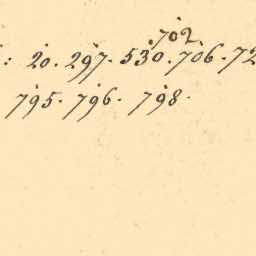 702
: 20. 297. 530. 706. 72
795. 796. 798.